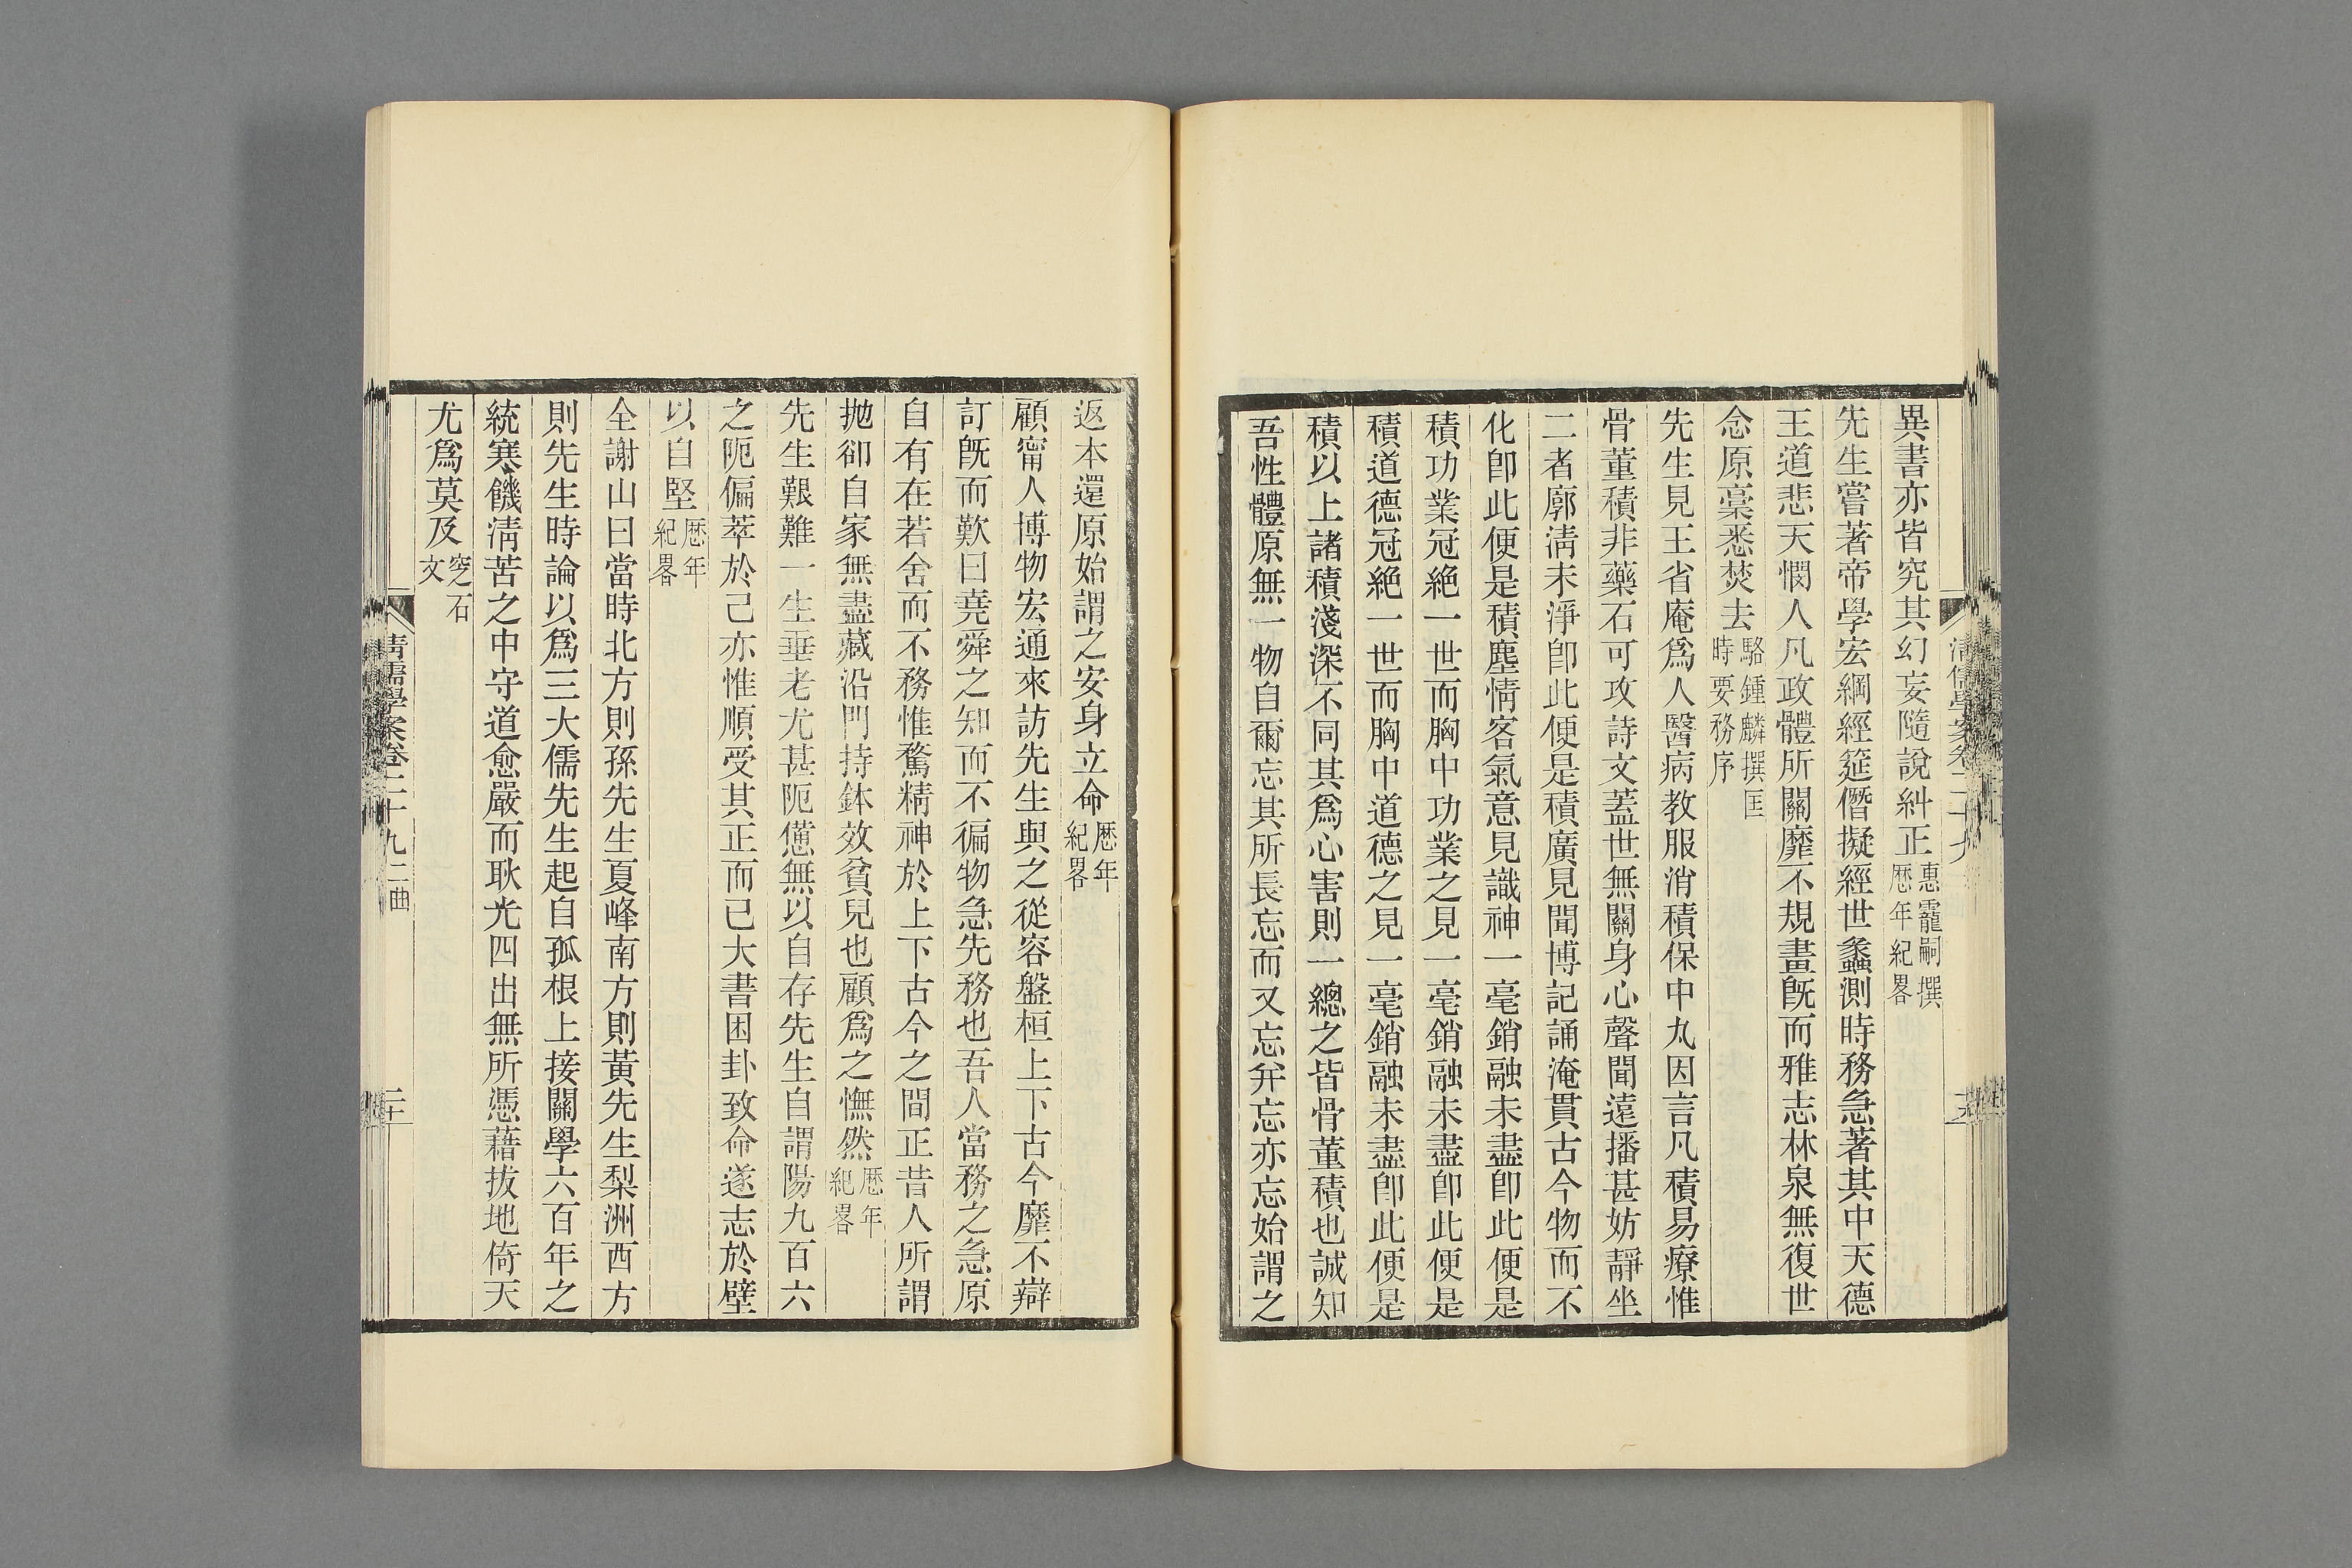 異書亦皆究其幻妄隨說糾正惠靇嗣撰歷年紀畧
先生嘗著帝學宏綱經筵僭擬經世蠡測時務急著其中天德
王道悲天憫人凡政體所關靡不規畫既而雅志林泉無復世
念原稾悉焚去駱鍾麟撰匡時要務序
先生見王省庵爲人醫病教服消積保中丸因言凡積易療惟
骨董積非藥石可攻詩文蓋世無關身心聲聞遠播甚妨靜坐
二者廓清未淨卽此便是積廣見聞博記誦淹貫古今物而不
化卽此便是積塵情客氣意見識神一毫銷融未盡卽此便是
積功業冠絶一世而胸中功業之見一毫銷融未盡卽此便是
積道德冠絶一世而胸中道德之見一毫銷融未盡卽此便是
積以上諸積淺深不同其爲心害則一總之皆骨董積也誠知
吾性體原無一物自爾忘其所長忘而又忘幷忘亦忘始謂之
返本還原始謂之安身立命歷年紀畧
顧甯人博物宏通來訪先生與之從容盤桓上下古今靡不辯
訂既而歎曰堯舜之知而不徧物急先務也吾人當務之急原
自有在若舍而不務惟騖精神於上下古今之間正昔人所謂
抛卻自家無盡藏沿門持鉢效貧兒也顧爲之憮然歷年紀畧
先生艱難一生垂老尤甚阨憊無以自存先生自謂陽九百六
之阨偏萃於己亦惟順受其正而已大書困卦致命遂志於壁
以自堅歷年紀畧
全謝山曰當時北方則孫先生夏峰南方則黃先生梨洲西方
則先生時論以爲三大儒先生起自孤根上接關學六百年之
統寒餓清苦之中守道愈嚴而耿光四出無所憑藉拔地倚天
尤爲莫及窆石文
清儒學案卷二十九二曲
二十